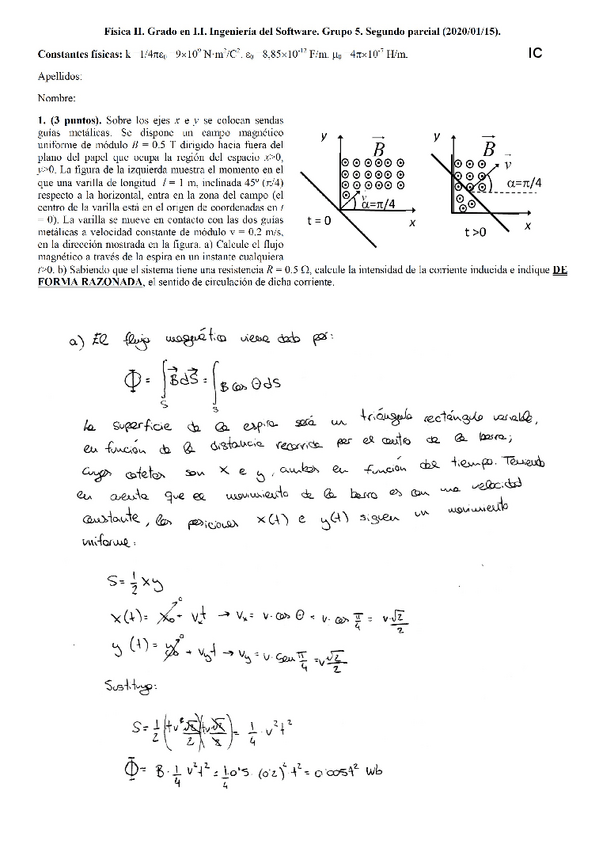 Física II. Grado en I.I. Ingeniería del Software. Grupo 5. Segundo parcial (2020/01/15).
Constantes físicas: k 1/4πε₀ 9×10⁹ N·m²/C². ε₀ 8,85×10⁻¹² F/m. μ₀ 4π×10⁻⁷ H/m.
IC
Apellidos:
Nombre:
1. (3 puntos). Sobre los ejes x e y se colocan sendas
guías metálicas. Se dispone un campo magnético
uniforme de módulo B = 0.5 T dirigido hacia fuera del
plano del papel que ocupa la región del espacio x>0,
y>0. La figura de la izquierda muestra el momento en el
que una varilla de longitud l = 1 m, inclinada 45º (π/4)
respecto a la horizontal, entra en la zona del campo (el
centro de la varilla está en el origen de coordenadas en t
= 0). La varilla se mueve en contacto con las dos guías
metálicas a velocidad constante de módulo v = 0,2 m/s,
en la dirección mostrada en la figura. a) Calcule el flujo
magnético a través de la espira en un instante cualquiera
t>0. b) Sabiendo que el sistema tiene una resistencia R = 0.5 Ω, calcule la intensidad de la corriente inducida e indique DE
FORMA RAZONADA, el sentido de circulación de dicha corriente.
y
B
v
α=π/4
x
t = 0
y
B
v
α=π/4
x
t >0
a) El flujo magnético viene dado por:
Φ = ∫s B dS = ∫s B cos Θ dS
La superficie de la espira será un triángulo rectángulo variable,
en función de la distancia recorrida por el centro de la barra;
cuyos catetos son x e y, ambos en función del tiempo. Teniendo
en cuenta que el movimiento de la barra es con una velocidad
constante, las posiciones x(t) e y(t) siguen un movimiento
uniforme:
S = 1/2 xy
x(t) = x₀ + vₓt → vₓ = v·cos Θ = v·cos π/4 = v√2/2
y(t) = y₀ + v_y t → v_y = v·sen π/4 = v√2/2
Sustituyo:
S = 1/2 (tv √2/2)(tv √2/2) = 1/4 · v²t²
Φ = B · 1/4 v²t² = 1/4 0'5 · (0'2)² t² = 0'005t² Wb